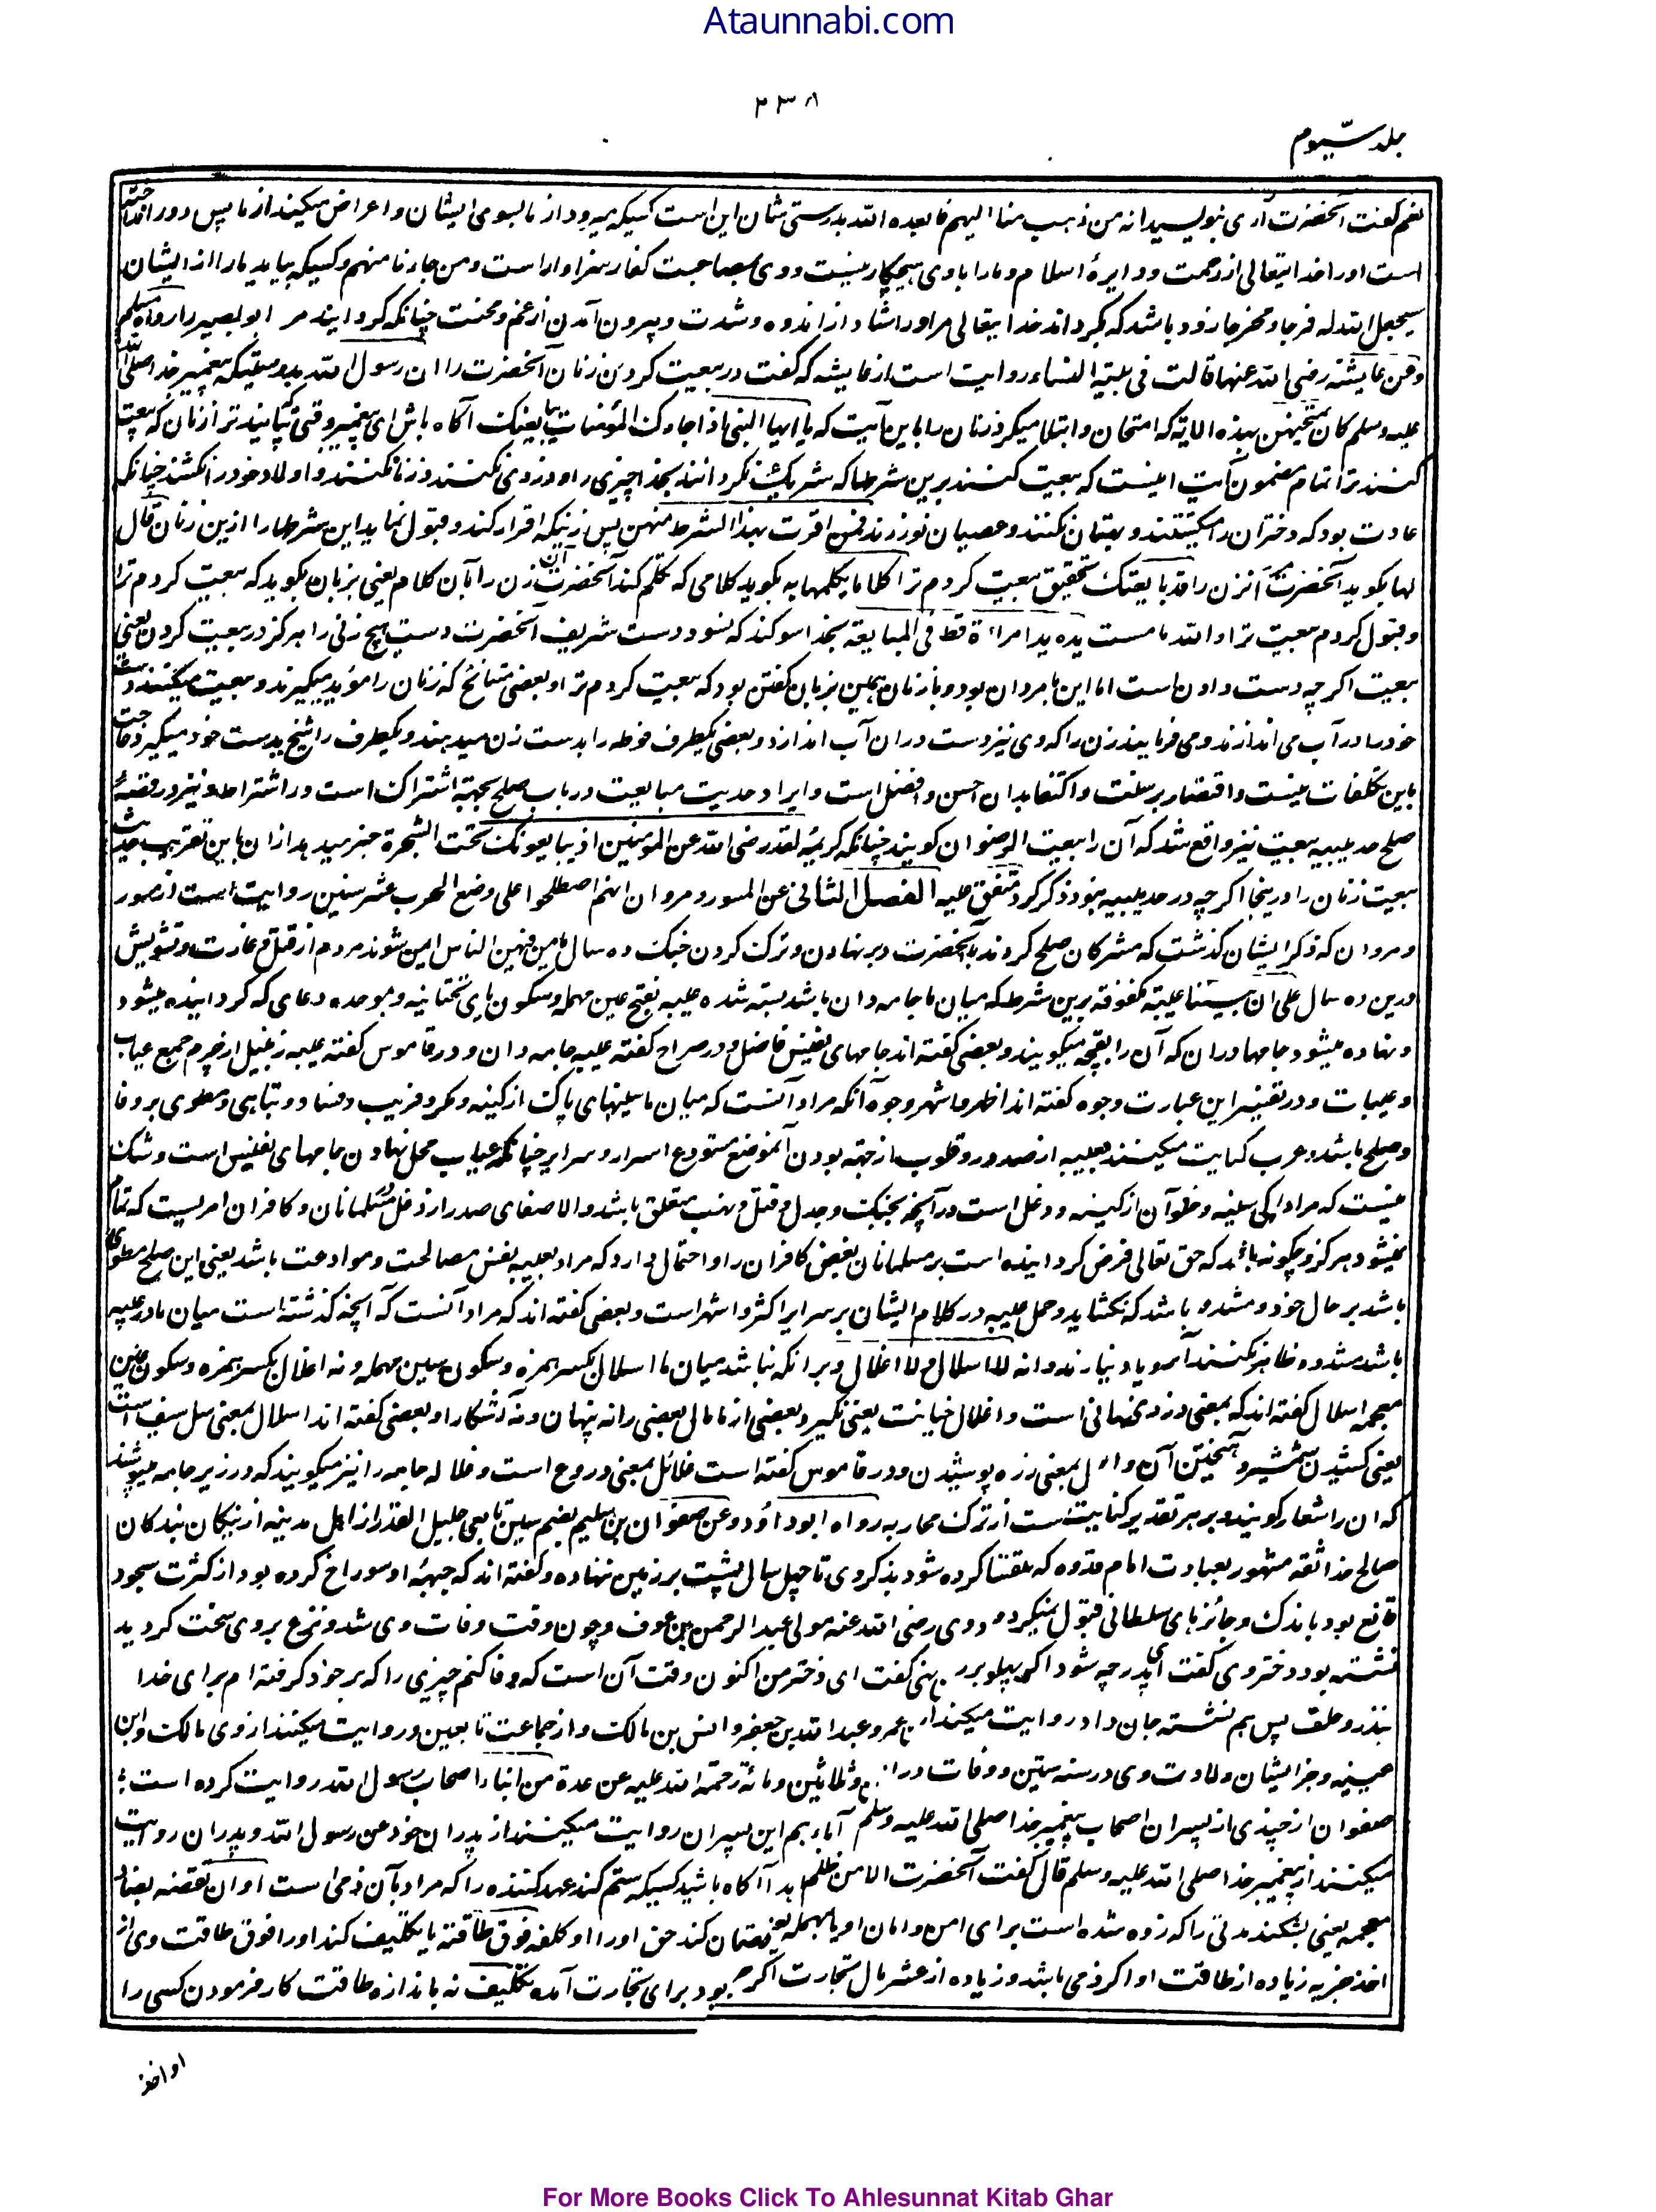 Ataunnabi.com
۲۳۸
جلد سیوم
نعم گفت آنحضرت آری بنویسید انه من ذهب منا الیهم فابعده الله بدرستی شان این است کسیکه میرود از ما بسوی ایشان و اعراض میکند از ما پس دور انداخته
است او را خدایتعالی از رحمت و دایرهٔ اسلام و ما را با وی هیچ کار نیست و وی بمصاحبت کفار سزاوار است و من جاءنا منهم و کسیکه بیاید ما را از ایشان
سیجعل الله له فرجا و مخرجا زود باشد که بگرداند خدایتعالی مر او را شاد از اندوه و شدت و بیرون آمدن از غم و محنت چنانکه گردانید مر ابو بصیر را رواه مسلم
وعن عایشة رضی الله عنها قالت فی بیعة النساء روایت است از عایشه که گفت در بیعت کردن زنان آنحضرت را ان رسول الله بدرستیکه پیغمبر خدا صلی الله
علیه وسلم کان یمتحنهن بهذه الایة که امتحان و ابتلا میکرد زنان را باین آیت که یا ایها النبی اذا جاءک المؤمنات یبایعنک آگاه باش ای پیغمبر وقتی که بیایند ترا زنان که بیعت
کنند ترا تمام مضمون آیت اینست که بیعت کنند برین شرطها که شریک نگردانند بخدا چیزی را و دزدی نکنند و زنا نکنند و اولاد خود را نکشند چنانکه
عادت بود که دختران را میکشتند و بهتان نکنند و عصیان نورزند فمن اقرت بهذا الشرط منهن پس زنیکه اقرار کند و قبول نماید این شرطها را ازین زنان قال
لها بگوید آنحضرت مر آنزن را قد بایعتک بتحقیق بیعت کردم ترا کلاما یکلمها به بگوید کلامی که تکلم کند آنحضرت آن زن را بآن کلام یعنی بزبان بگوید که بیعت کردم ترا
و قبول کردم بیعت ترا و الله ما مست یده ید امراءة قط فی المبایعة بخدا سوگند که نسود دست شریف آنحضرت دست هیچ زنی را هرگز در بیعت کردن یعنی
بیعت اگرچه دست دادن است اما این با مردان بود و با زنان همین بزبان گفتن بود که بیعت کردم ترا و بعضی مشائخ که زنان را مرید میگیرند و بیعت میکنند دست
خود را در آب می اندازند و می فرمایند زن را که وی نیز دست در ان آب اندازد و بعضی یکطرف فوطه را بدست زن میدهند و یکطرف را شیخ بدست خود میگیرد حاجت
باین تکلفات نیست و اقتصار بر سنت و اکتفا بدان احسن و افضل است و ایراد حدیث مبایعت در باب صلح بجهة اشتراک است در اشتراط و نیز در قضیهٔ
صلح حدیبیه بیعت نیز واقع شد که آن را بیعت الرضوان گویند چنانکه کریمهٔ لقد رضی الله عن المؤمنین اذ یبایعونک تحت الشجرة خبر میدهد ازان باین تقریب حدیث
بیعت زنان را در ینجا اگرچه در حدیبیه نبود ذکر کرد متفق علیه الفصل الثانی عن المسور و مروان انهم اصطلحوا علی وضع الحرب عشر سنین روایت است از مسور
و مروان که ذکر ایشان گذشت که مشرکان صلح کردند بآنحضرت بر نهادن و ترک کردن جنگ ده سال یامن فیهن الناس ایمن شوند مردم از قتل و غارت و تشویش
درین ده سال علی ان بیننا عیبة مکفوفة برین شرط که میان ما جامه دان باشد بسته شده عیبه بفتح عین مهمله و سکون یای تحتانیه و موحده دعای که گردانیده میشود
و نهاده میشود جامها دران که آن را بقچه میگویند و بعضی گفته اند جامهای نفیس فاضل و در صراح گفته عیبه جامه دان و در قاموس گفته عیبه زنبیل از چرم جمع عیاب
و عیبات و در تفسیر این عبارت وجوه گفته اند اظهر و اشهر وجوه آنکه مراد آنست که میان ما سینهای پاک از کینه و مکر و فریب و فساد و تباهی و مطوی بر وفا
و صلح باشد و عرب کنایت میکنند بعیبه از صدور و قلوب از جهة بودن آن موضع مستودع اسرار و سرایر چنانکه عیاب محل نهادن جامهای نفیس است و شک
نیست که مراد پاکی سینه و خلو آن از کینه و دغل است در آنچه بجنگ و جدل و قتل و نهب متعلق باشد و الا صفای صدر از دغل مسلمانان و کافران امریست که تمام
نمیشود هرگز و چگونه باشد که حق تعالی فرض گردانیده است بر مسلمانان بغض کافران را و احتمال دارد که مراد بعیبه نفس مصالحت و موادعت باشد یعنی این صلح مطوی
باشد بر حال خود و مشدود باشد که نکشاید و حمل عیبه در کلام ایشان بر سرایر اکثر و اشهر است و بعضی گفته اند که مراد آنست که آنچه گذشته است میان ما در عیبه
باشد مشدود ظاهر نکنند آنرا و یاد نیارند و انه لا اسلال و لا اغلال و بر آنکه نباشد میان ما اسلال بکسر همزه و سکون سین مهمله و نه اغلال بکسر همزه و سکون غین
معجمه اسلال گفته اند که بمعنی دزدی نهانی است و اغلال خیانت یعنی نگیرد بعضی از ما مال بعضی را نه پنهان و نه آشکارا و بعضی گفته اند اسلال بمعنی سل سیف است
یعنی کشیدن شمشیر و آهیختن آن و اغلال بمعنی زره پوشیدن و در قاموس گفته است غلائل بمعنی دروع است و غلاله جامه را نیز میگویند که در زیر جامه میپوشند
که ان را شعار گویند و بر هر تقدیر کنایت ست از ترک محاربه رواه ابو داؤد وعن صفوان بن سلیم بضم سین تابعی جلیل القدر از اهل مدینه از نیکان بندگان
صالح خدا ثقه مشهور بعبادت امام قدوه که استسقا کرده شود بذکر وی تا چهل سال پشت بر زمین ننهاده و گفته اند که جبههٔ او سوراخ کرده بود از کثرت سجود
قانع بود باندک و جائزهای سلطانی قبول نمیکرد و وی رضی الله عنه مولی عبد الرحمن بن عوف و چون وقت وفات وی شد و نزع بروی سخت گردید
نشسته بود دختر وی گفت ای پدر چه شود اگر پهلو بر زمین نهی گفت ای دختر من اکنون وقت آن است که وفا کنم چیزی را که بر خود گرفته ام برای خدا
بنذر و حلف پس هم نشسته جان داد روایت میکند از ابن عمر و عبد الله بن جعفر و انس بن مالک و از جماعت تابعین و روایت میکنند از وی مالک و ابن
عیینه و جز ایشان ولادت وی در سنه ستین و وفات در اثنین و ثلاثین و مائة رحمة الله علیه عن عدة من ابناء اصحاب رسول الله روایت کرده است
صفوان از چندی از پسران اصحاب پیغمبر خدا صلی الله علیه وسلم عن آبائهم این پسران روایت میکنند از پدران خود عن رسول الله و پدران روایت
میکنند از پیغمبر خدا صلی الله علیه وسلم قال گفت آنحضرت الا من ظلم معاهدا آگاه باشید کسیکه ستم کند عهد کننده را که مراد بآن ذمی است او انتقضه بضاد
معجمه یعنی بشکند مدتی را که زده شده است برای امن و امان او یا بمهمله یعنی نقصان کند حق او را او کلفه فوق طاقته یا تکلیف کند او را فوق طاقت وی از
اخذ جزیه زیاده از طاقت او اگر ذمی باشد و زیاده از عشر مال تجارت اگر حربی بود برای تجارت آمده تکلیف نه باندازه طاقت کار فرمودن کسی را
او اخذ
For More Books Click To Ahlesunnat Kitab Ghar